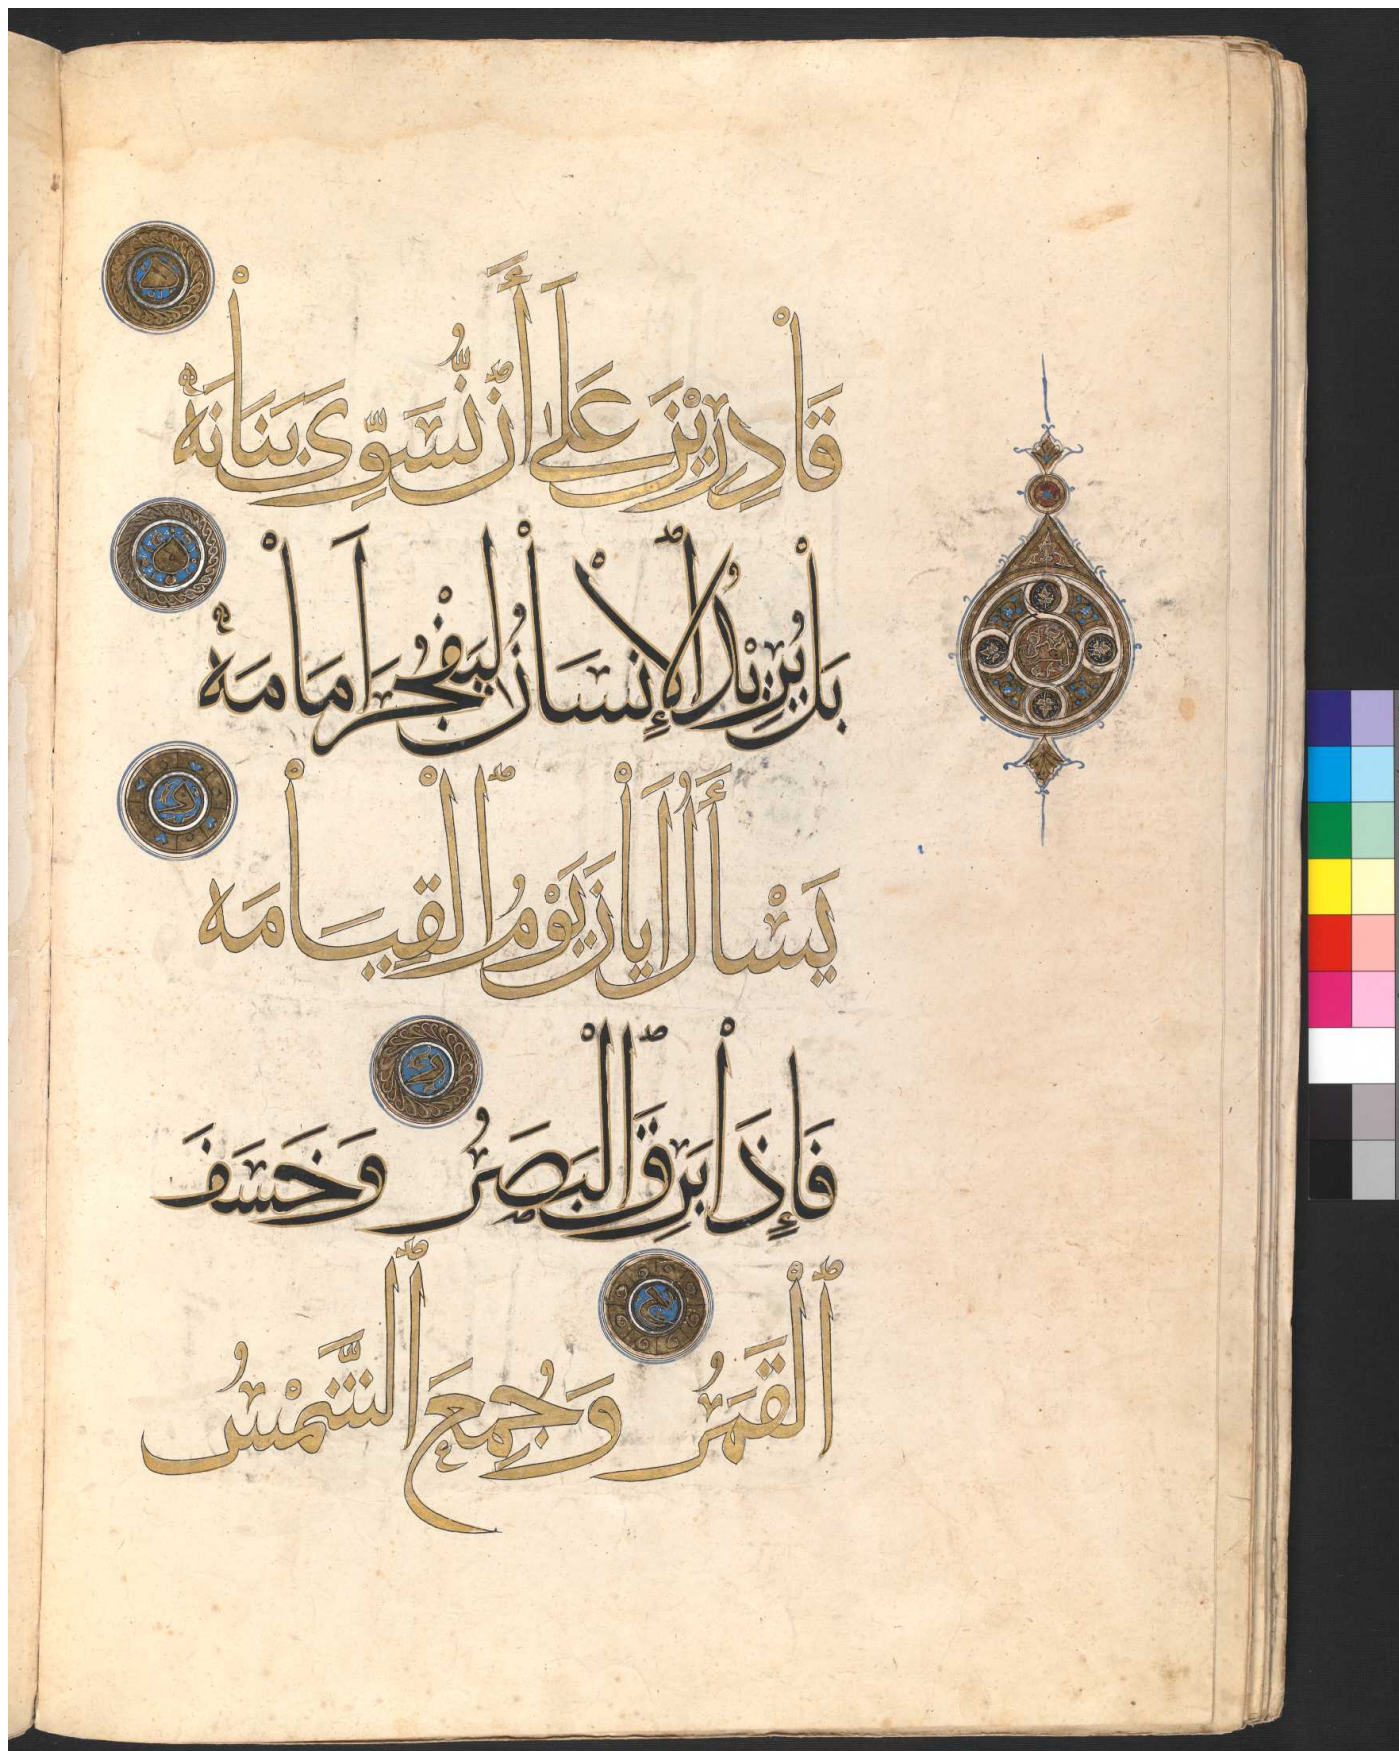 قَادِرِيْنَ عَلَى أَن نُّسَوِّىَ بَنَانَهُ
بَلْ يُرِيْدُ الْإِنْسَانُ لِيَفْجُرَ اَمَامَهُ
يَسْأَلُ اَيَانَ يَوْمُ الْقِيَامَه
فَإِذَا بَرِقَ الْبَصَرُ وَخَسَفَ
الْقَمَرُ وَجُمِعَ الشَّمْسُ